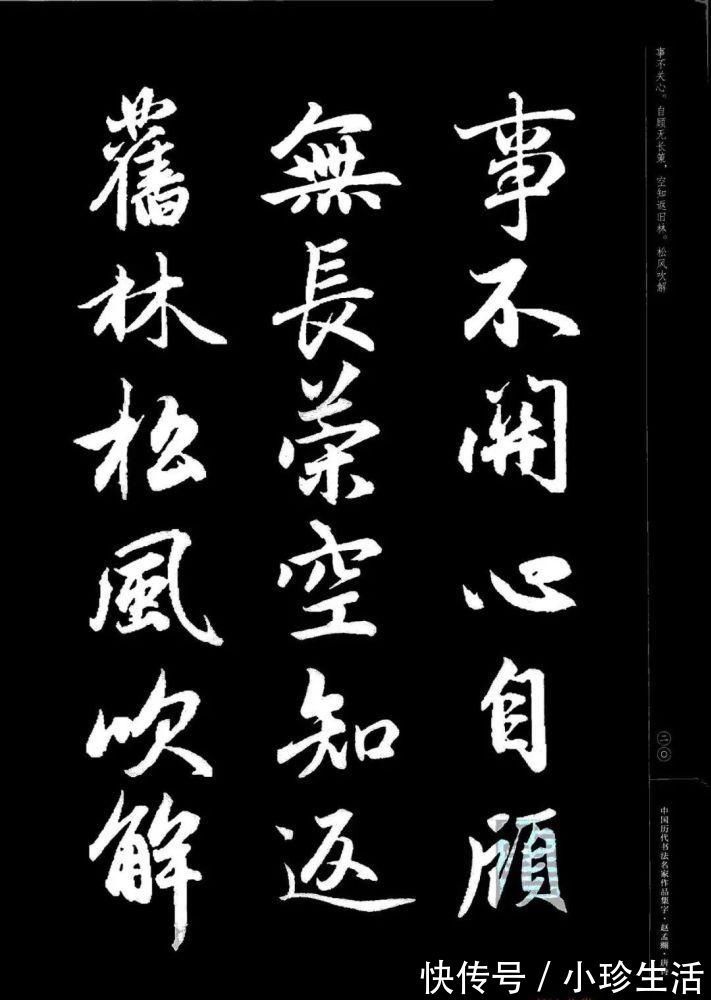 事不關心自顧
無長策空知返
舊林松風吹解
事不关心。自顾无长策，空知返旧林。松风吹解
二〇
中国历代书法名家作品集字·赵孟頫·唐诗
快传号／小珍生活